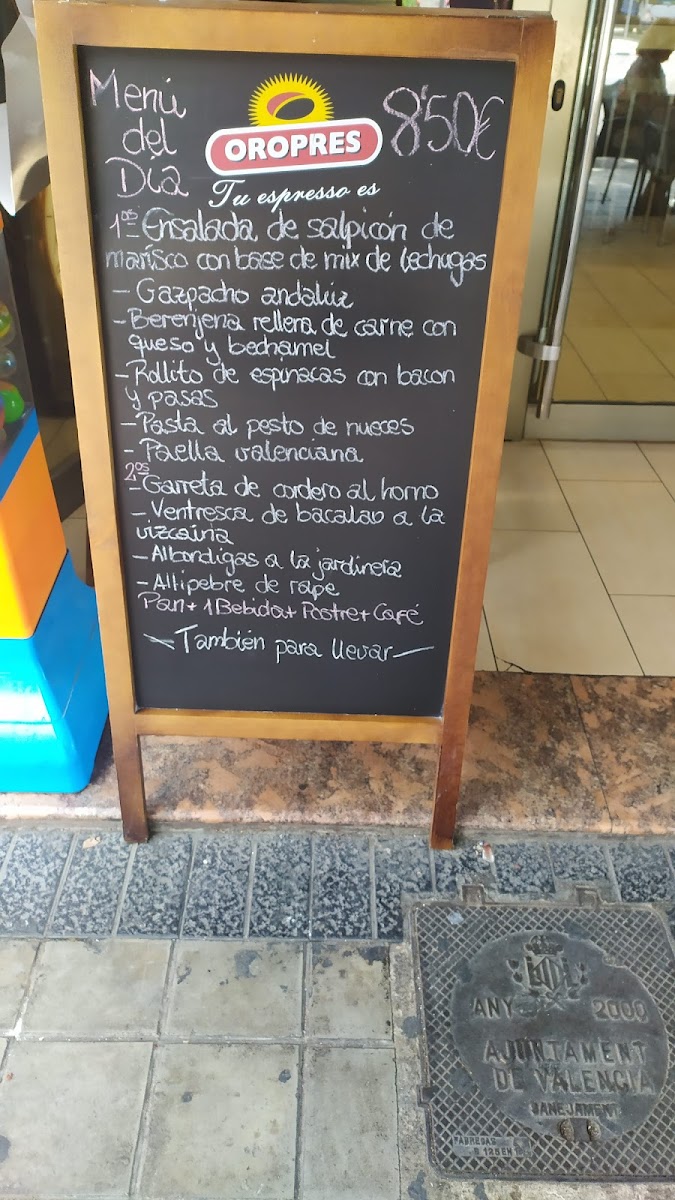 Menú
del
Día
OROPRES
Tu espresso es
8'50€
1ºs Ensalada de salpicón de
marisco con base de mix de lechugas
- Gazpacho andaluz
- Berenjena rellena de carne con
queso y bechamel
- Rollito de espinacas con bacon
y pasas
- Pasta al pesto de nueces
- Paella valenciana
2ºs
- Garreta de cordero al horno
- Ventresca de bacalao a la
vizcaina
- Albondigas a la jardinera
- Allipebre de rape
Pan + 1 Bebida + Postre + Café
También para llevar
ANY 2000
AJUNTAMENT
DE VALENCIA
SANEJAMENT